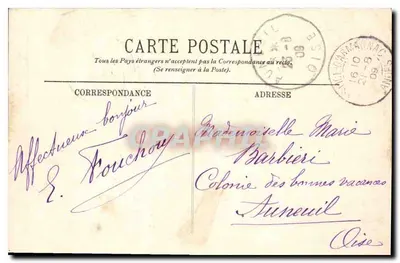 CARTE POSTALE
Tous les Pays étrangers n'acceptent pas la Correspondance au recto.
(Se renseigner à la Poste).
CORRESPONDANCE
ADRESSE
Affectueux bonjour
E. Fouchou
Mademoiselle Marie
Barbiéri
Colonie des bonnes vacances
Auneuil
Oise
AUNEUIL
OISE
16-10
21-8
09